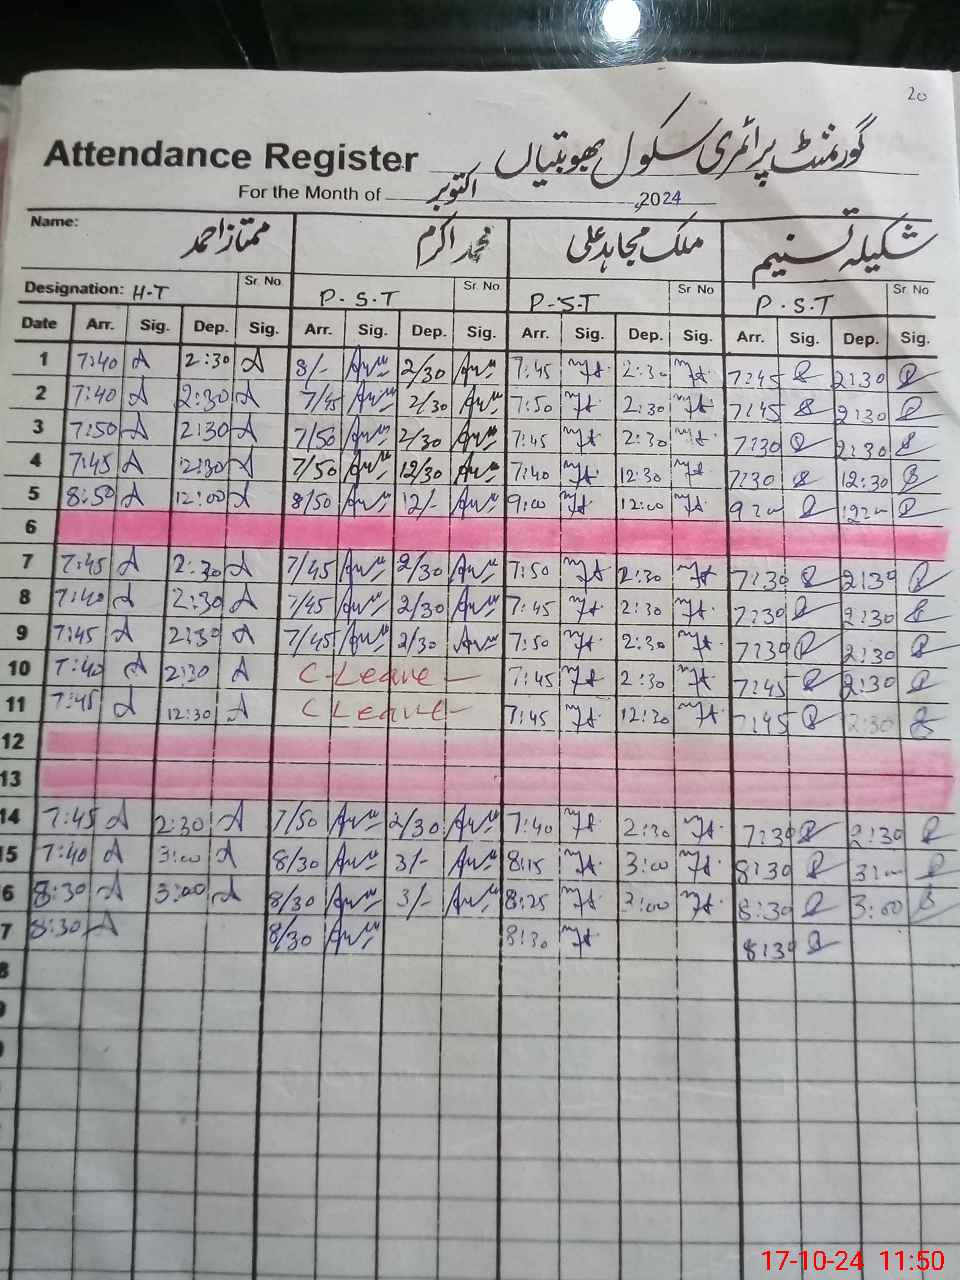 20
Attendance Register گورنمنٹ پرائمری سکول بھوبتیاں
For the Month of اکتوبر ,2024
Name: ممتاز احمد محمد اکرم ملک مجاہد علی شکیلہ تسنیم
Designation: H-T Sr. No. P-S-T Sr. No. P-S-T Sr. No P-S-T Sr. No
Date Arr. Sig. Dep. Sig. Arr. Sig. Dep. Sig. Arr. Sig. Dep. Sig. Arr. Sig. Dep. Sig.
1 7:40 2:30 8/- 2/30 7:45 2:30 7:45 2:30
2 7:40 2:30 7/45 2/30 7:50 2:30 7:45 2:30
3 7:50 2:30 7/50 2/30 7:45 2:30 7:30 2:30
4 7:45 12:30 7/50 12/30 7:40 12:30 7:30 12:30
5 8:50 12:00 8/50 12/- 9:00 12:00
6
7 7:45 2:30 7/45 2/30 7:50 2:30 7:30 2:30
8 7:40 2:30 7/45 2/30 7:45 2:30 7:30 2:30
9 7:45 2:30 7/45 2/30 7:50 2:30 7:30 2:30
10 7:40 2:30 C-Leave - 7:45 2:30 7:45 2:30
11 7:45 12:30 C Leave - 7:45 12:30 7:45 2:30
12
13
14 7:45 2:30 7/50 2/30 7:40 2:30 7:30 2:30
15 7:40 3:00 8/30 3/- 8:15 3:00 8:30 3:00
6 8:30 3:00 8/30 3/- 8:25 3:00 8:30 3:00
7 8:30 8/30 8:30 8:30
8
17-10-24 11:50